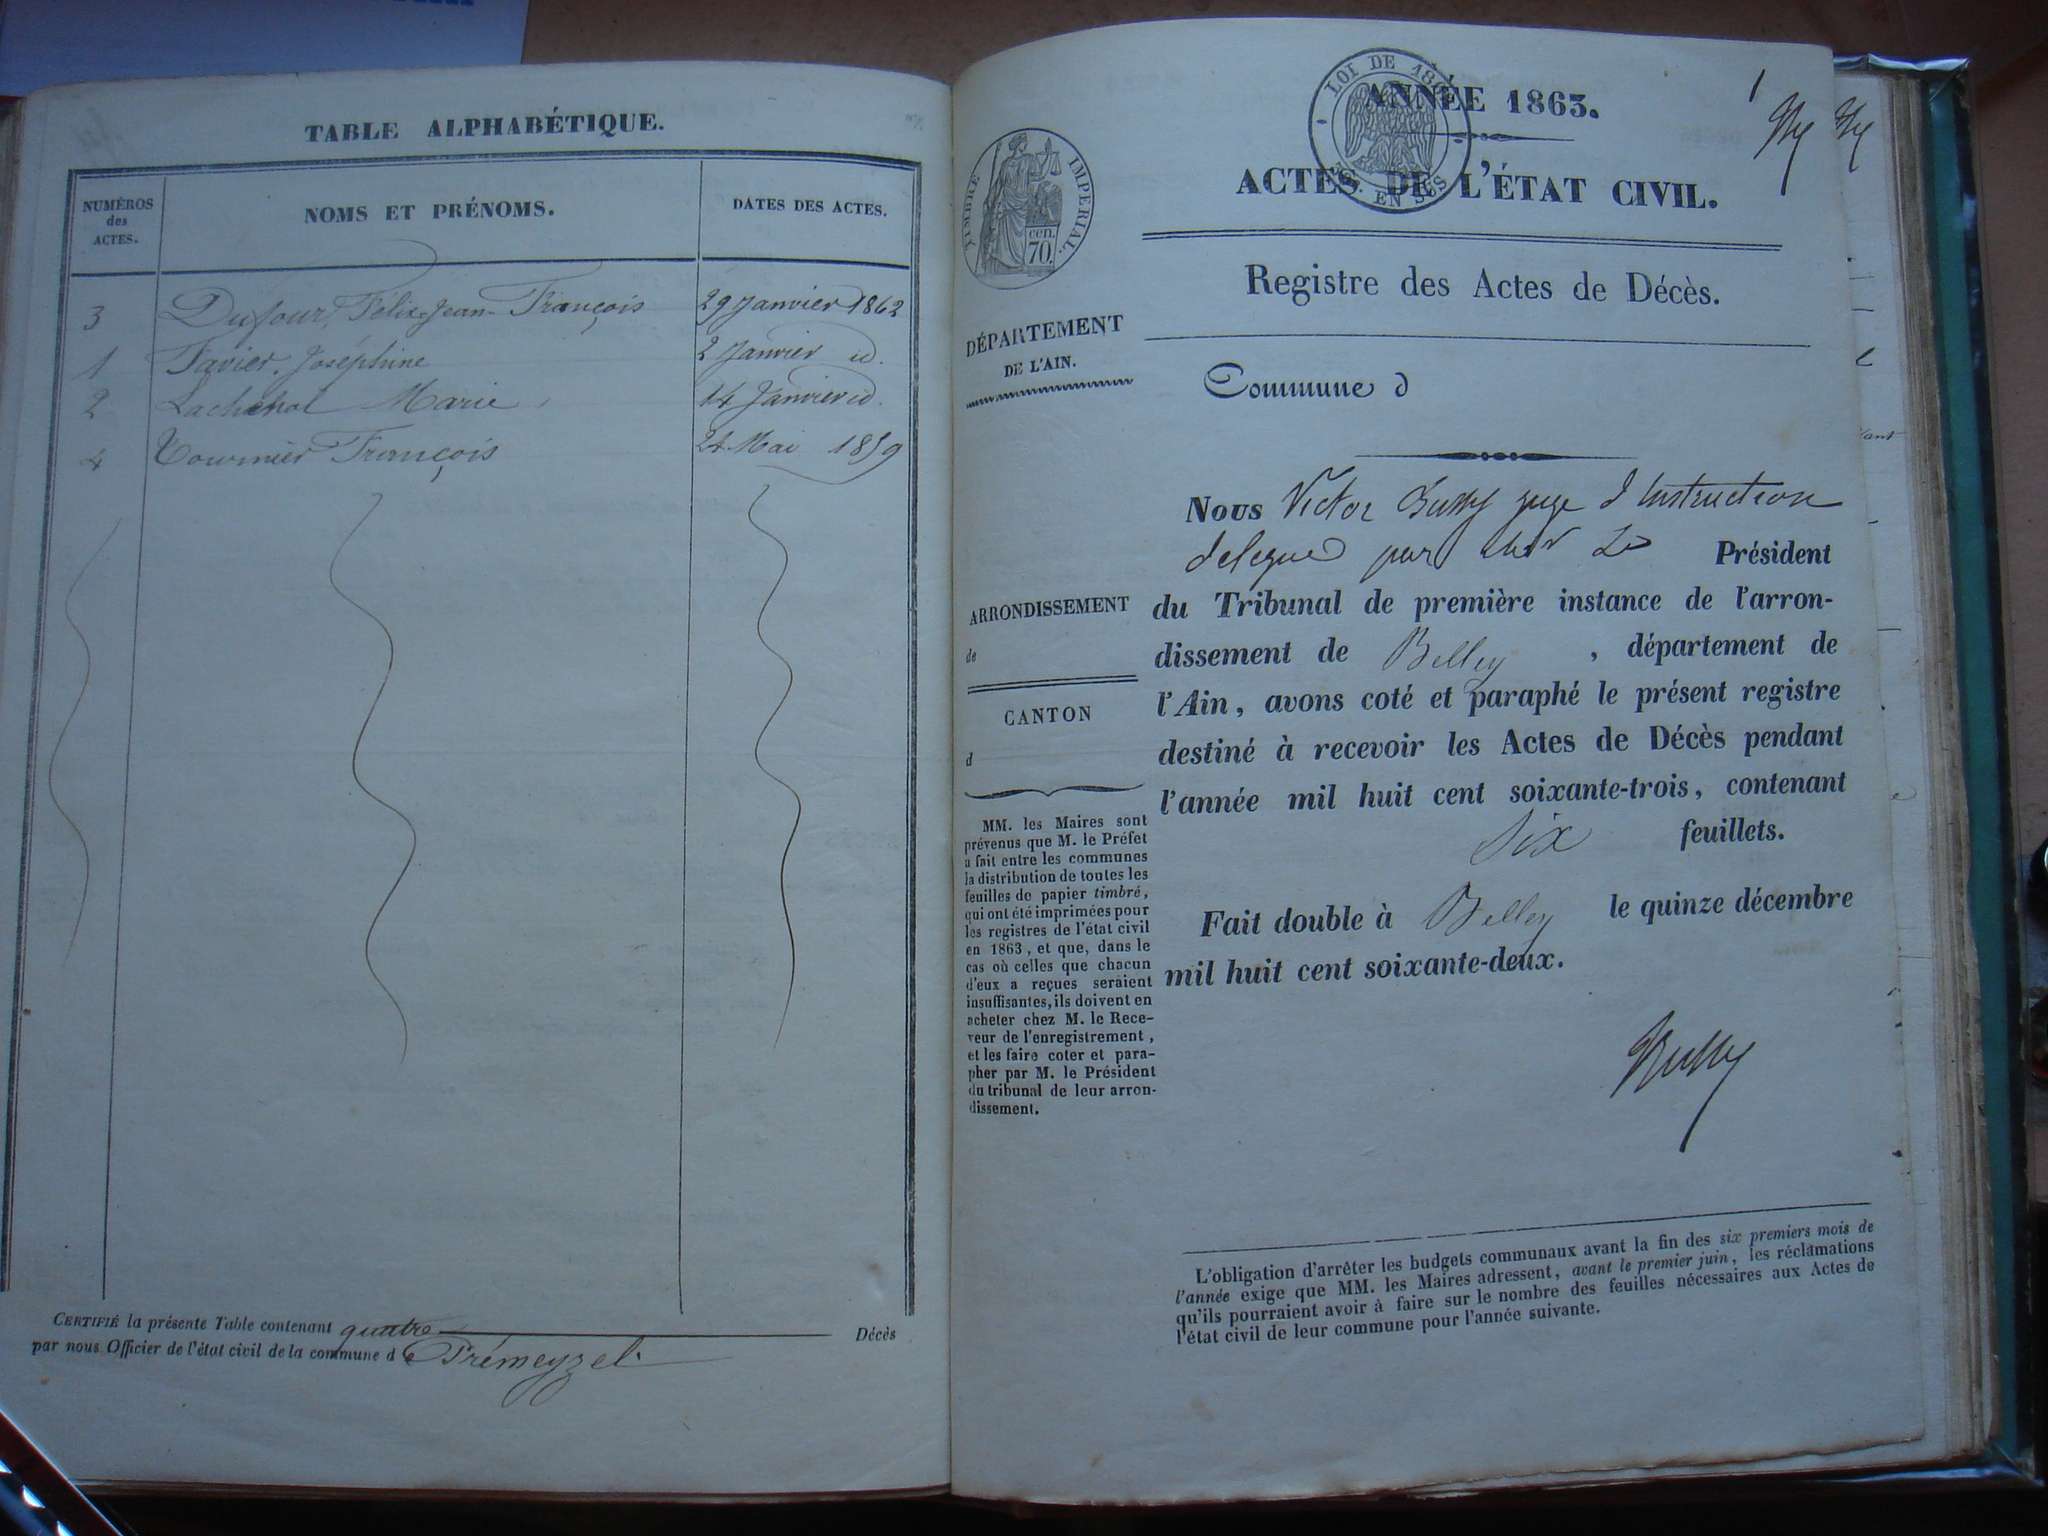 TABLE ALPHABÉTIQUE.
NUMÉROS
des
ACTES.
NOMS ET PRÉNOMS.
DATES DES ACTES.
3 Dufour, Félix-Jean-François 29 Janvier 1862
1 Favier Joséphine 2 Janvier id.
2 Lachenal Marie 14 Janvier id.
4 Tournier François 24 Mai 1859
CERTIFIÉ la présente Table contenant quatre Décès
par nous Officier de l'état civil de la commune de Prémeyzel.
1
LOI DE
EN SUS
ANNÉE 1863.
TIMBRE IMPÉRIAL.
cen.
70.
ACTES DE L'ÉTAT CIVIL.
Registre des Actes de Décès.
DÉPARTEMENT
DE L'AIN.
Commune d
Nous Victor juge d'Instruction
delegué par Le Président
ARRONDISSEMENT
de
CANTON
d
du Tribunal de première instance de l'arron-
dissement de Belley, département de
l'Ain, avons coté et paraphé le présent registre
destiné à recevoir les Actes de Décès pendant
l'année mil huit cent soixante-trois, contenant
Six feuillets.
Fait double à Belley le quinze décembre
mil huit cent soixante-deux.
MM. les Maires sont
prévenus que M. le Préfet
a fait entre les communes
la distribution de toutes les
feuilles de papier timbré,
qui ont été imprimées pour
les registres de l'état civil
en 1863, et que, dans le
cas où celles que chacun
d'eux a reçues seraient
insuffisantes, ils doivent en
acheter chez M. le Rece-
veur de l'enregistrement,
et les faire coter et para-
pher par M. le Président
du tribunal de leur arron-
dissement.
L'obligation d'arrêter les budgets communaux avant la fin des six premiers mois de
l'année exige que MM. les Maires adressent, avant le premier juin, les réclamations
qu'ils pourraient avoir à faire sur le nombre des feuilles nécessaires aux Actes de
l'état civil de leur commune pour l'année suivante.